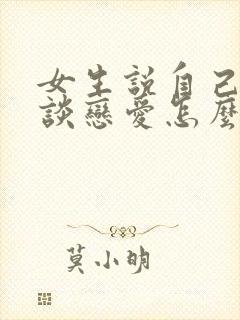 女生説自己
談戀愛怎麼
莫小明